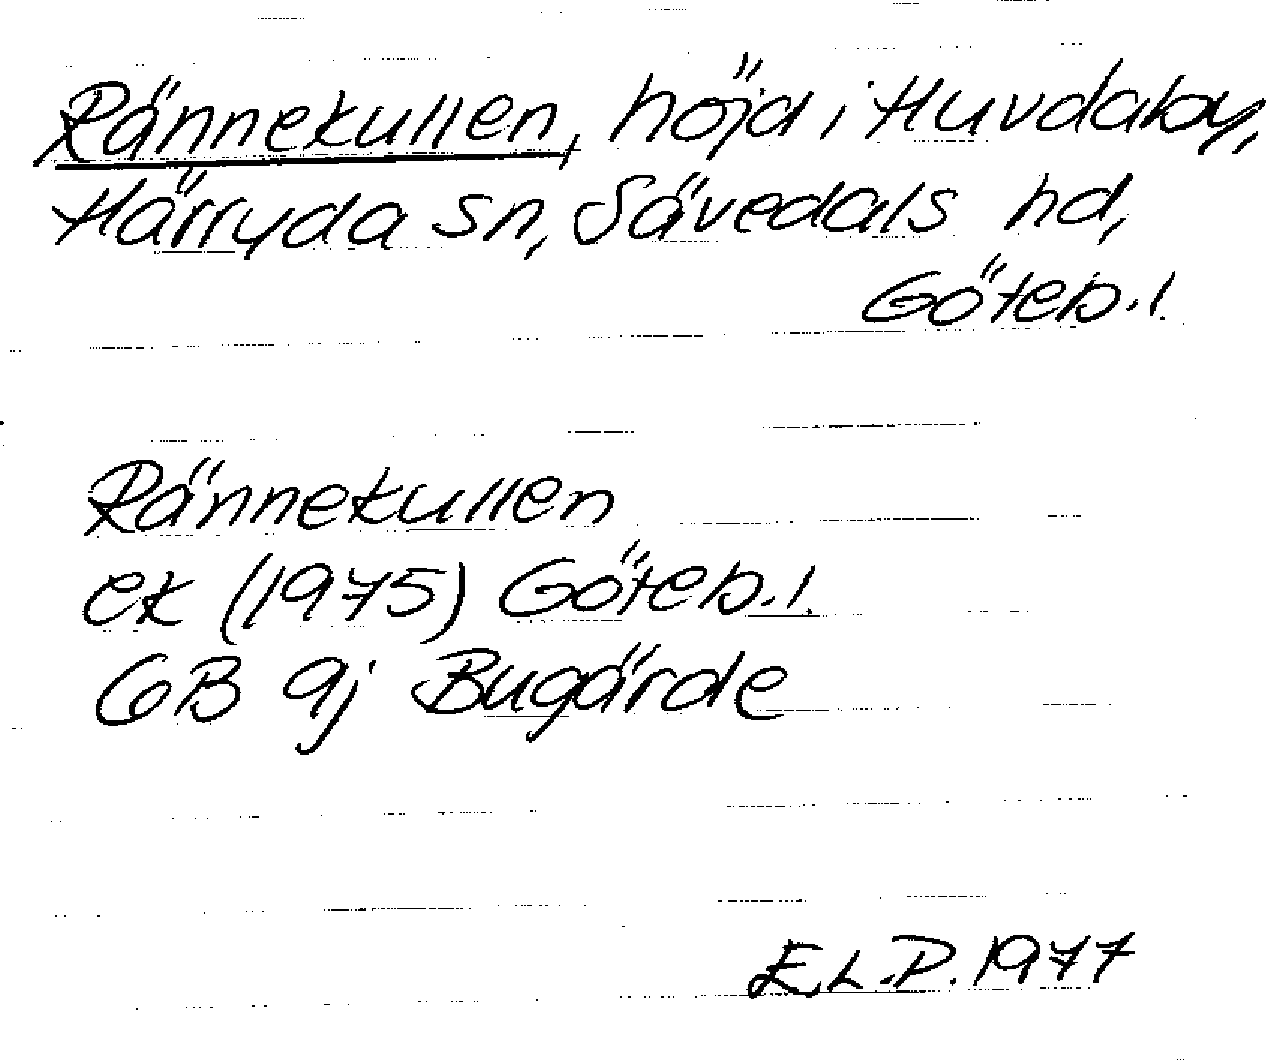 Rännekullen, höjd i Huvdaby,
Härryda sn, Sävedals hd,
Göteb. l.
Rännekullen
ek (1975) Göteb. l.
GB 9j Bugärde
E.L.P. 1977